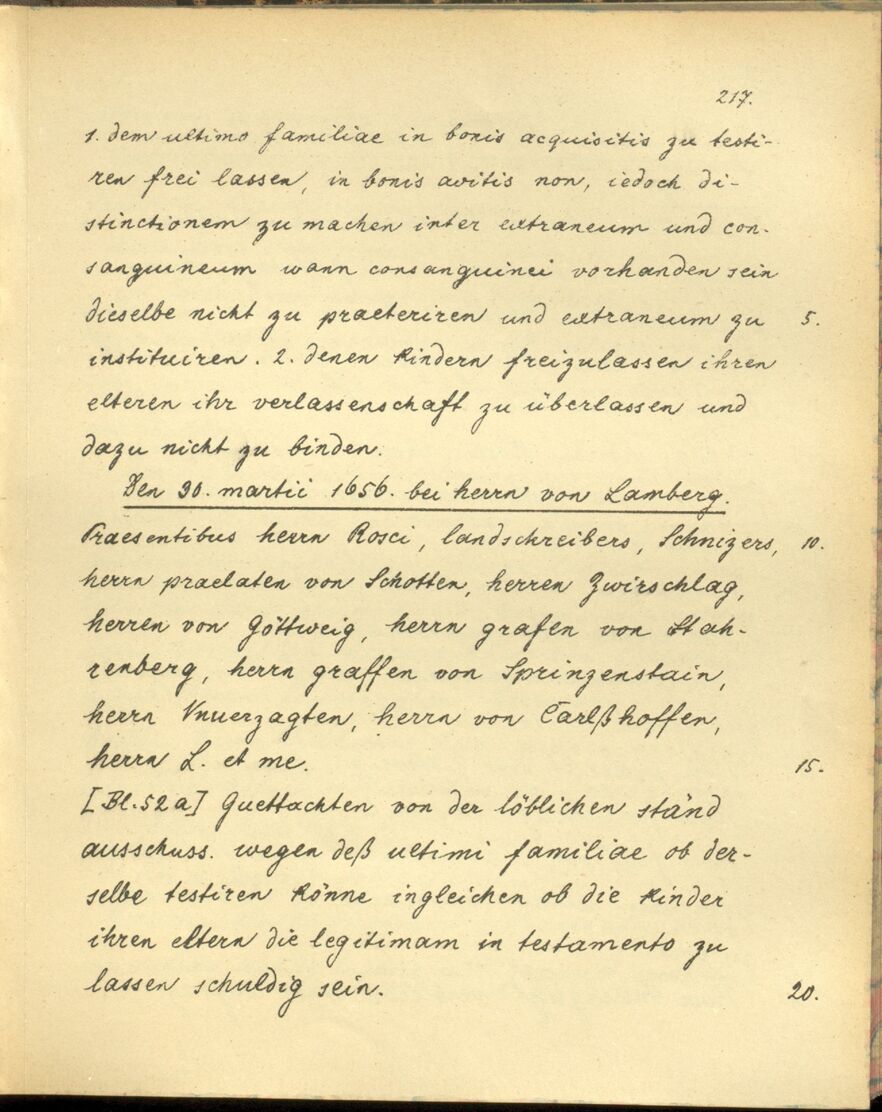 217.
1. dem ultimo familiae in bonis acquisitis zu testi-
ren frei lassen, in bonis avitis non, iedoch di-
stinctionem zu machen inter extraneum und con-
sanguineum wann consanguinei vorhanden sein
dieselbe nicht zu praeteriren und extraneum zu 5.
instituiren. 2. denen kindern freizulassen ihren
elteren ihr verlassenschaft zu überlassen und
dazu nicht zu binden.
Den 30. martii 1656. bei herrn von Lamberg.
Praesentibus herrn Rosci, landschreibers, Schnizers, 10.
herrn praelaten von Schotten, herren Zwirschlag,
herren von Göttweig, herrn grafen von Stah-
renberg, herrn graffen von Sprinzenstain,
herrn Vnuerzagten, herrn von Carlßhoffen,
herrn L. et me. 15.
[Bl. 52a] Guettachten von der löblichen ständ
ausschuss. wegen deß ultimi familiae ob der-
selbe testiren könne ingleichen ob die kinder
ihren eltern die legitimam in testamento zu
lassen schuldig sein. 20.